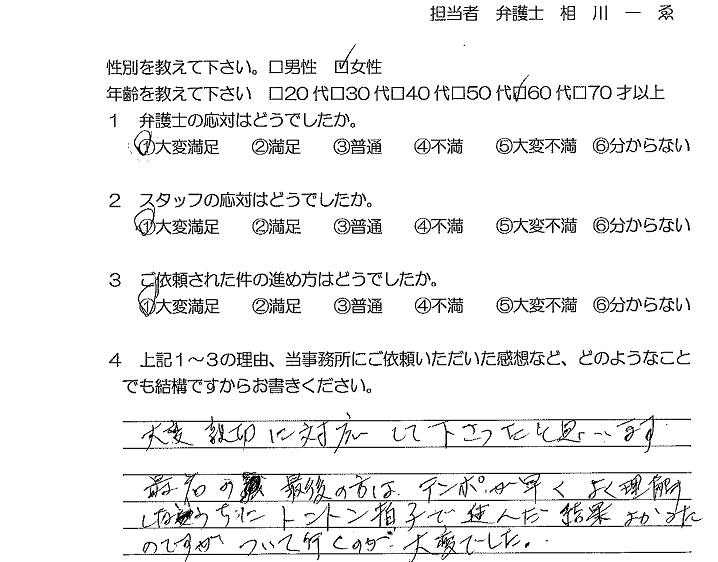 担当者　弁護士　相　川　一　ゑ
性別を教えて下さい。□男性　☑女性
年齢を教えて下さい　□20代□30代□40代□50代☑60代□70才以上
１　弁護士の応対はどうでしたか。
①大変満足　②満足　③普通　④不満　⑤大変不満　⑥分からない
２　スタッフの応対はどうでしたか。
①大変満足　②満足　③普通　④不満　⑤大変不満　⑥分からない
３　ご依頼された件の進め方はどうでしたか。
①大変満足　②満足　③普通　④不満　⑤大変不満　⑥分からない
４　上記１～３の理由、当事務所にご依頼いただいた感想など、どのようなこと
でも結構ですからお書きください。
大変親切に対応して下さったと思います
最後の方は、テンポが早くよく理解
しないうちにトントン拍子で進んだ結果よかった
のですが、ついて行くのが大変でした。